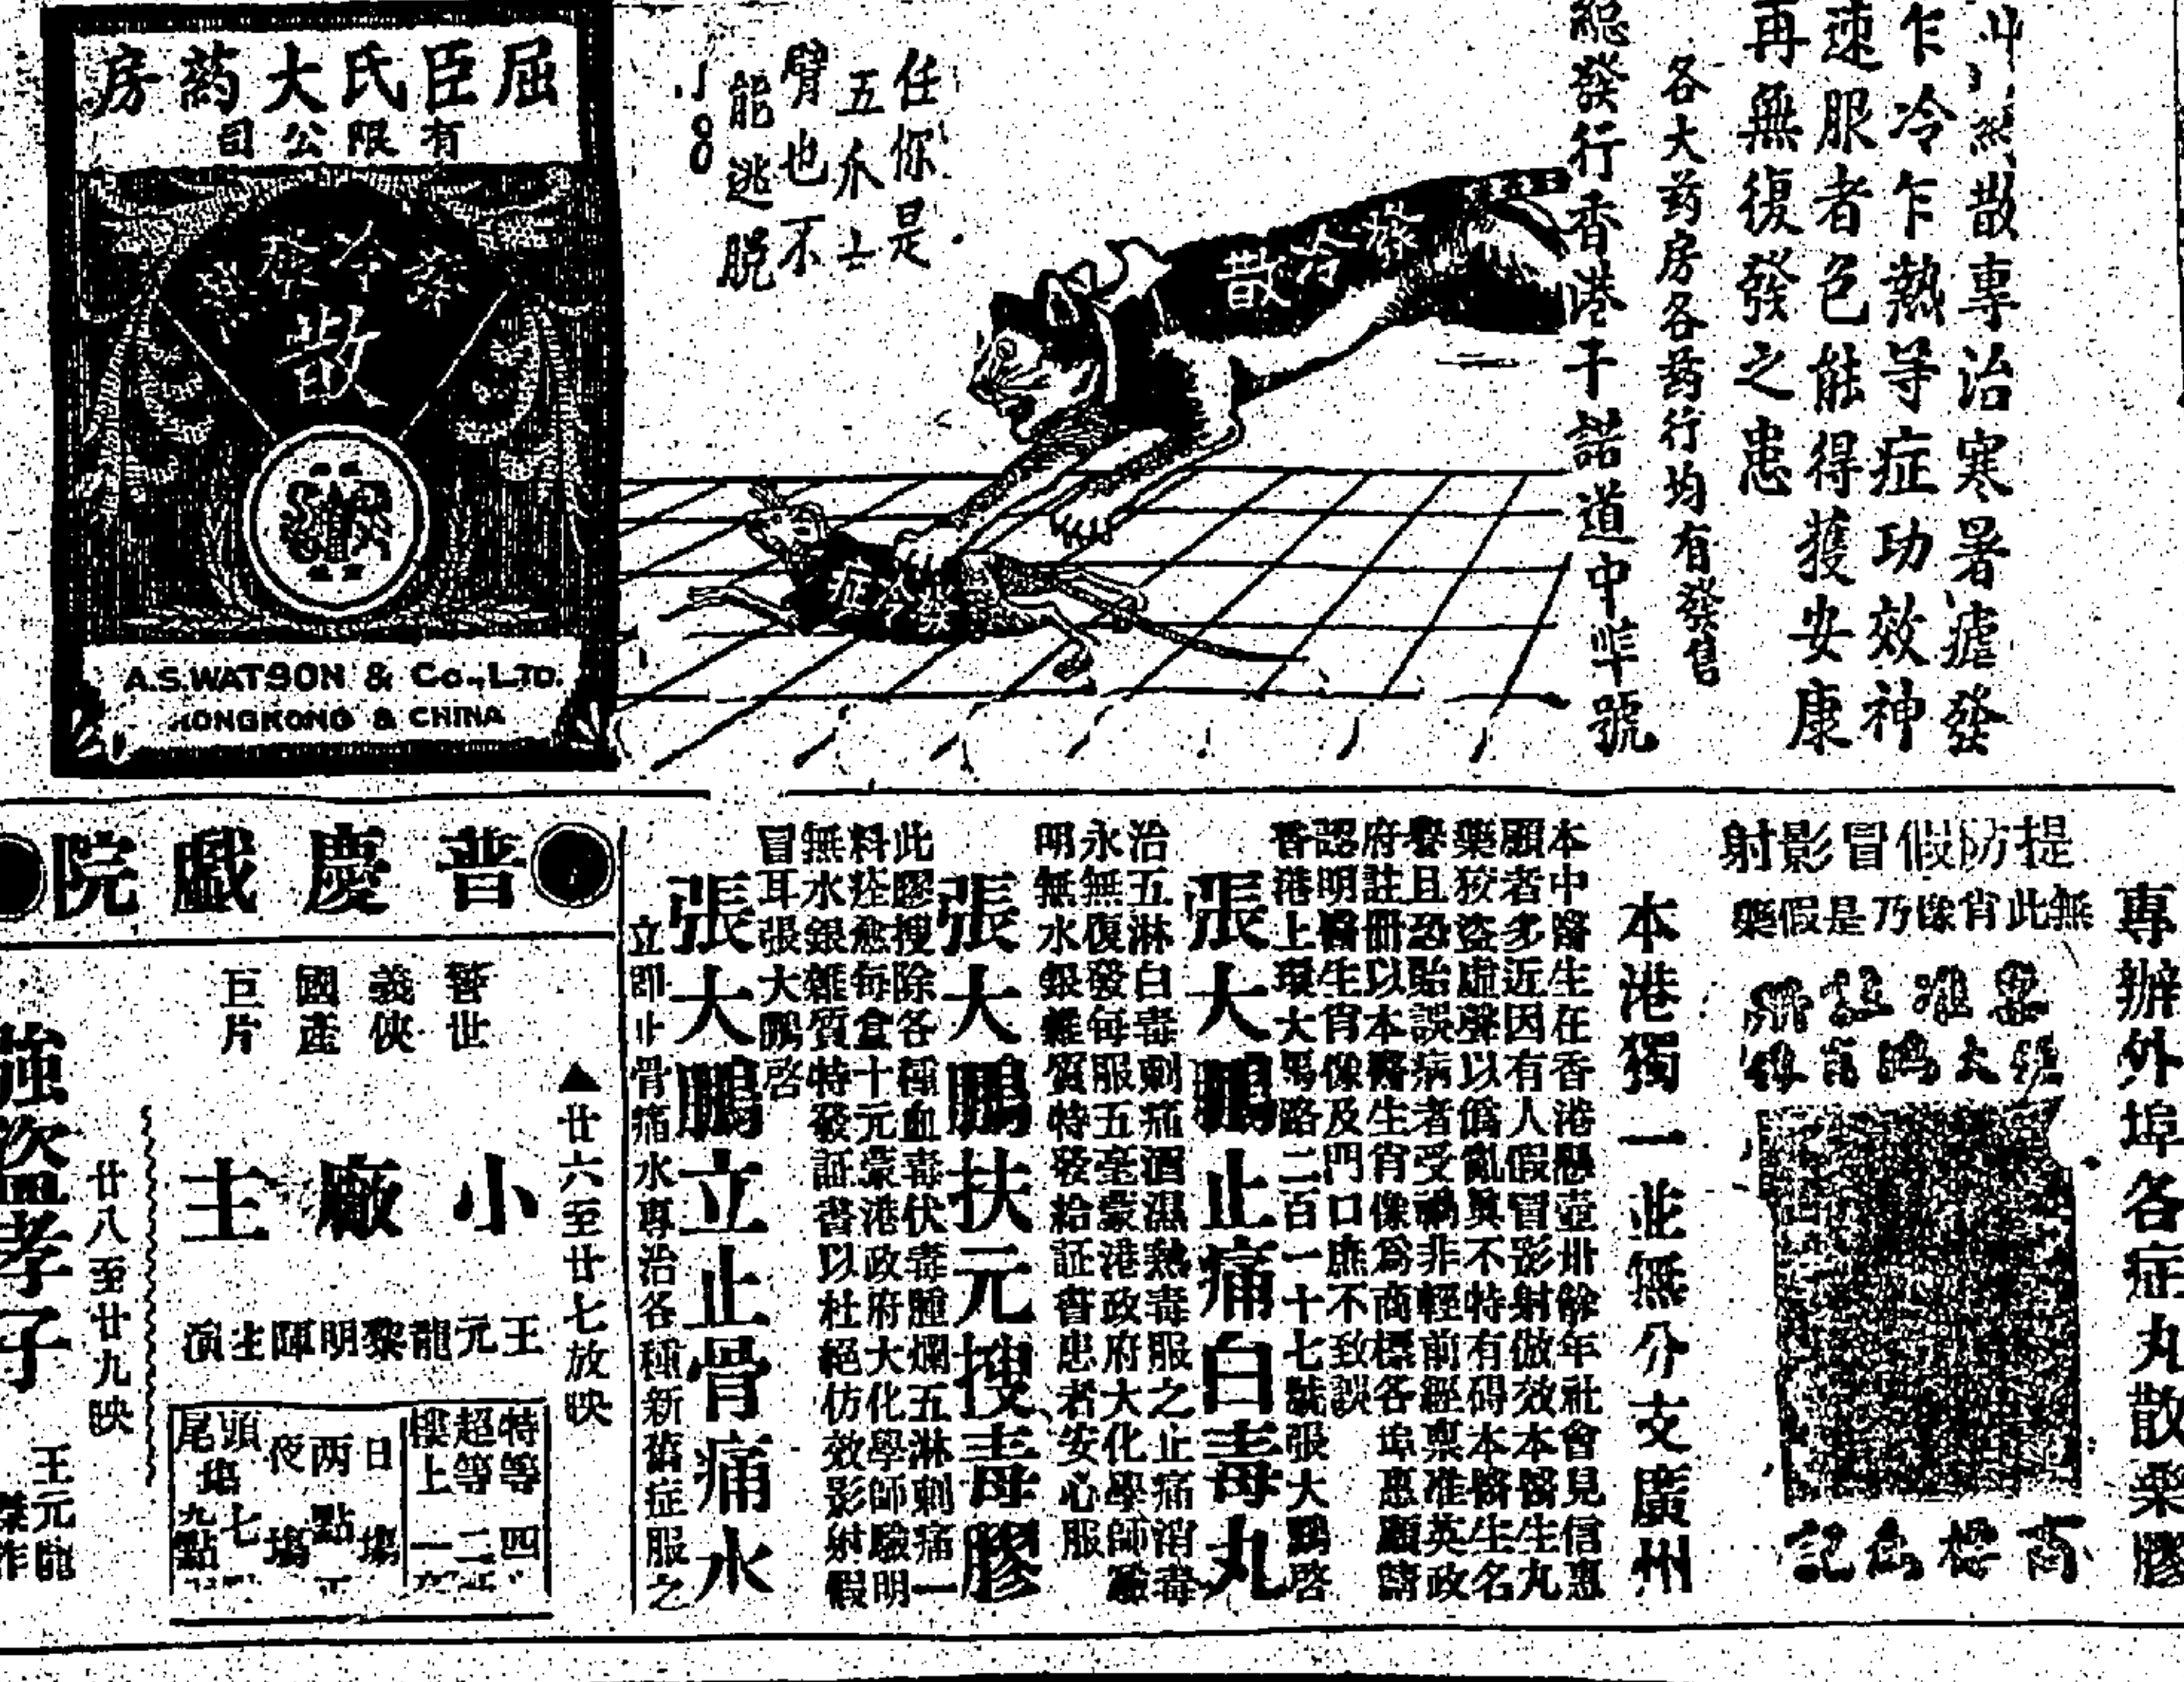 屈臣氏大葯房
有限公司
發冷
散
A.S.WATSON & Co.,LTD.
HONGKONG & CHINA
任你是
五永士
臂也不
能逃脫
發冷散
發冷症
散專治寒暑瘧發
乍冷乍熱等症功效神
速服者包能得獲安康
再無復發之患
各大药房各药行均有發售
總發行香港干諾道中號
專辦外埠各症丸散藥膠
提防假冒影射
無此肖像乃是假藥
張大鵬肖像
商標為記
本港獨一並無分支廣州
本中醫生在香港懸壺卅餘年社會見信惠
顧者多近因有人假冒影射倣效本醫生丸
藥狡盜虛聲以偽亂眞不特有碍本醫生名
譽且恐貽誤病者受禍非輕前經稟准英政
府註冊以本醫生肖像為商標各埠惠顧請
認明醫生肖像及門口庶不致誤
香港上環大馬路二百一十七號張大鵬啓
張大鵬止痛白毒丸
治五淋白毒刺痛酒濕熱毒服之止痛消毒
永無復發每服五毫蒙港政府大化學師驗
明無水銀雜質特發給証書患者安心服
張大鵬扶元搜毒膠
此膠搜除各種血毒伏毒腫爛五淋刺痛一
料痊愈每盒十元蒙港政府大化學師驗明
無水銀雜質特發証書以杜絕仿效影射假
冒耳張大鵬啓
張大鵬立止骨痛水
立即止骨痛水專治各種新舊症服之
普慶戲院
▲廿六至廿七放映
警世
義俠
國產
巨片
小廠主
王元龍黎明暉主演
特等四
超等二
樓上一
日塲
两點
夜塲
頭塲七
尾塲九點
廿八至廿九映
強盜孝子
王元龍
傑作